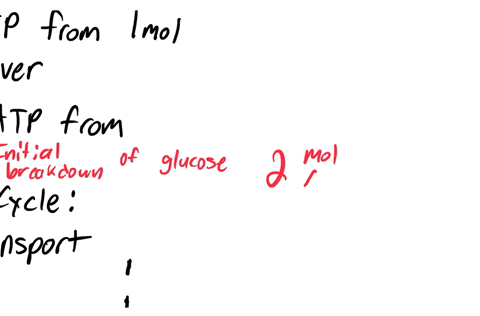 P from 1mol
ver
ATP from
Initial breakdown of glucose 2 mol
Cycle:
nsport